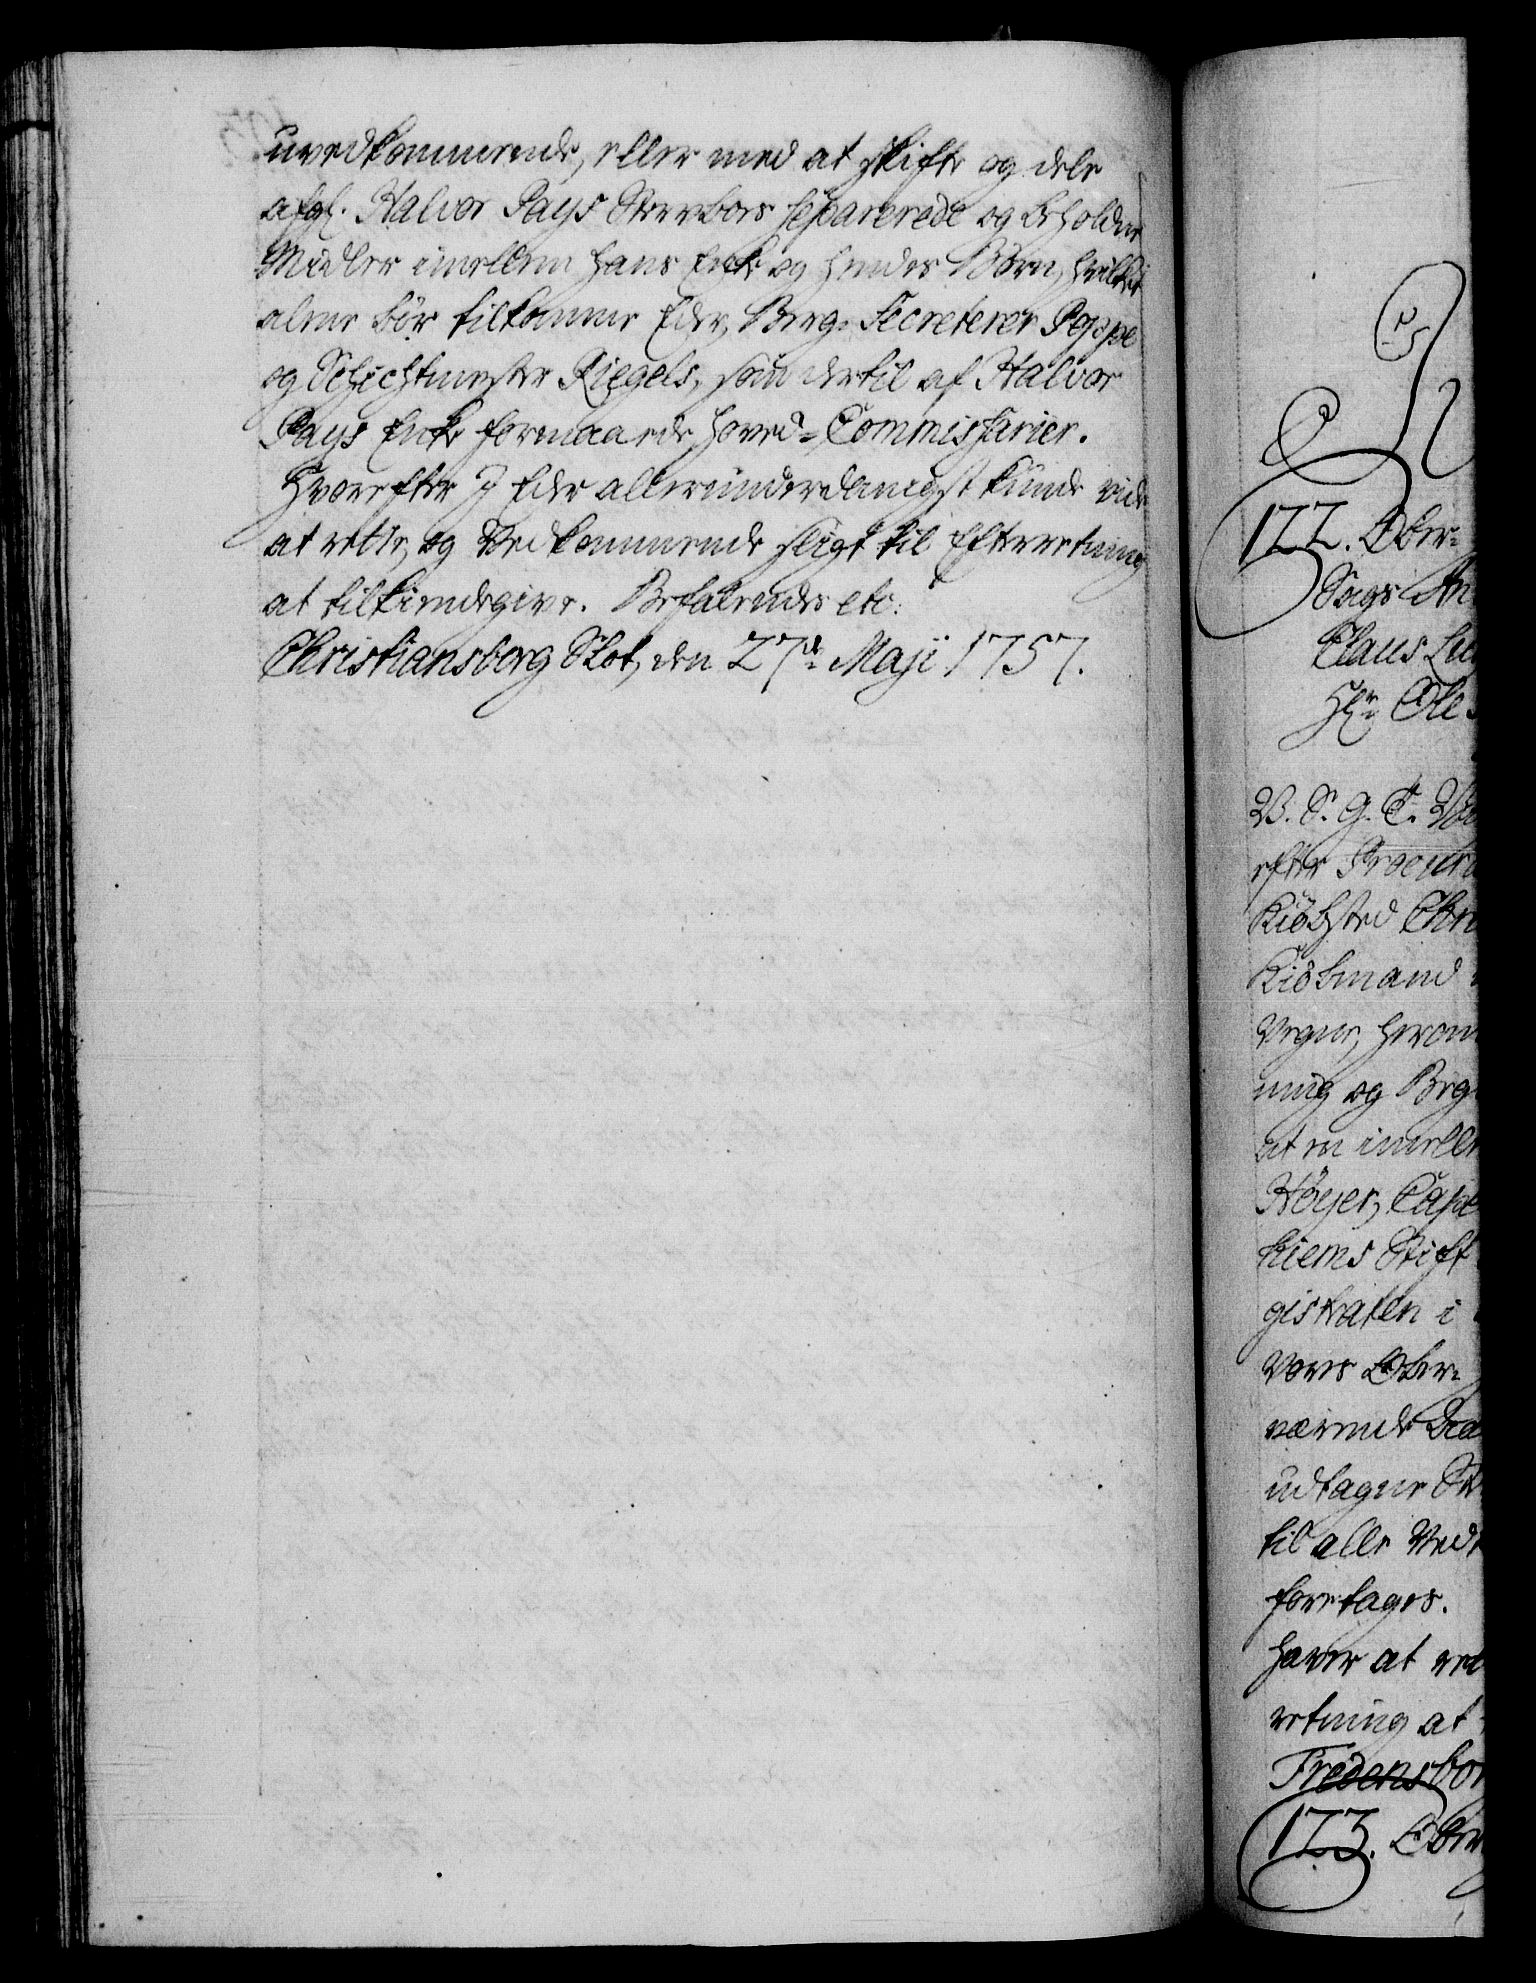 uvedkommende, eller med at skifte og dele
afg. Halvor Pays Sterboes separerede og beholdne
Midler imellem hans Enke og hendes Børn, hvilket
alene bør tilkomme Eder, Berg-Secreterer Poppe
og Schichtmester Riegels, som dertil af Halvor
Pays Enke formaaede Hoved-Commissarier.
Hvorefter I Eder allerunderdanigst kunde vide
at rette, og Vedkommende sligt til Efterretning
at tilkiendegive. Befalendes etc:
Christiansborg Slot, den 27de Maji 1757.
122. Ober-
Sags An
Claus
Hr. Ole
V. S. G. T.
efter Procura
Kiøbsted Chri
Kiøbmand
Vegne, herom
ning og Beg
at en imellem
Høyer, Cape
hiems Stift
gistraten i
vores Ober-
værende
udtagne St
til alle Ved
foretages.
haver at ret
retning at
Fredensbor
123. Ober